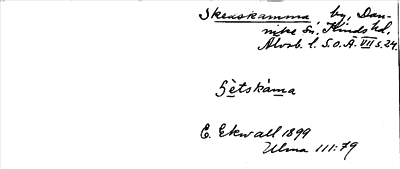 Skexskamma, by, Dan-
nike Sn, Kinds hd,
Älvsb. l. S.O.Ä. VII s.24.
Sètskáma
E. Ekwall 1899
Ulma 111:79